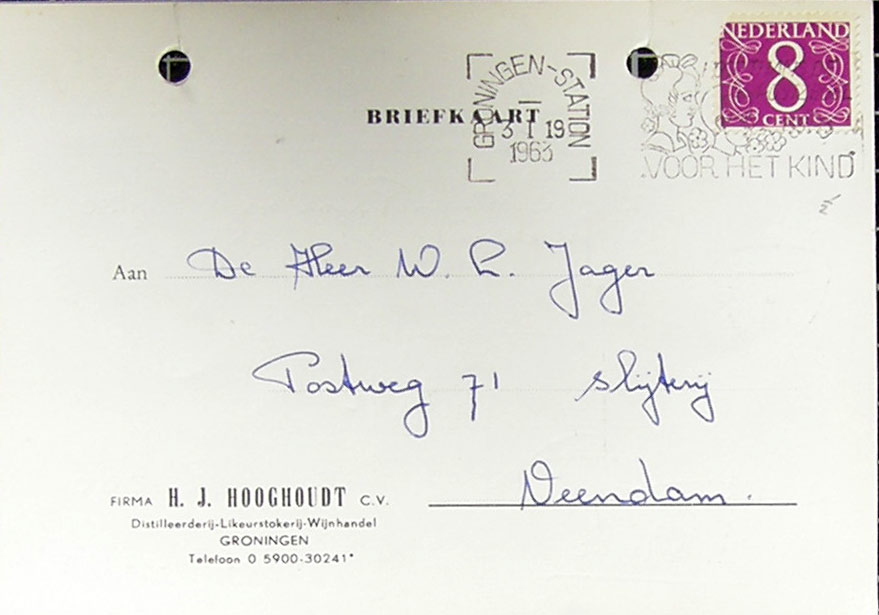 NEDERLAND
8
CENT
GRONINGEN-STATION
3 I 19
1963
VOOR HET KIND
BRIEFKAART
Aan De Heer W. L. Jager
Postweg 71 slijterij
Veendam.
FIRMA H. J. HOOGHOUDT C.V.
Distilleerderij-Likeurstokerij-Wijnhandel
GRONINGEN
Telefoon 0 5900-30241*